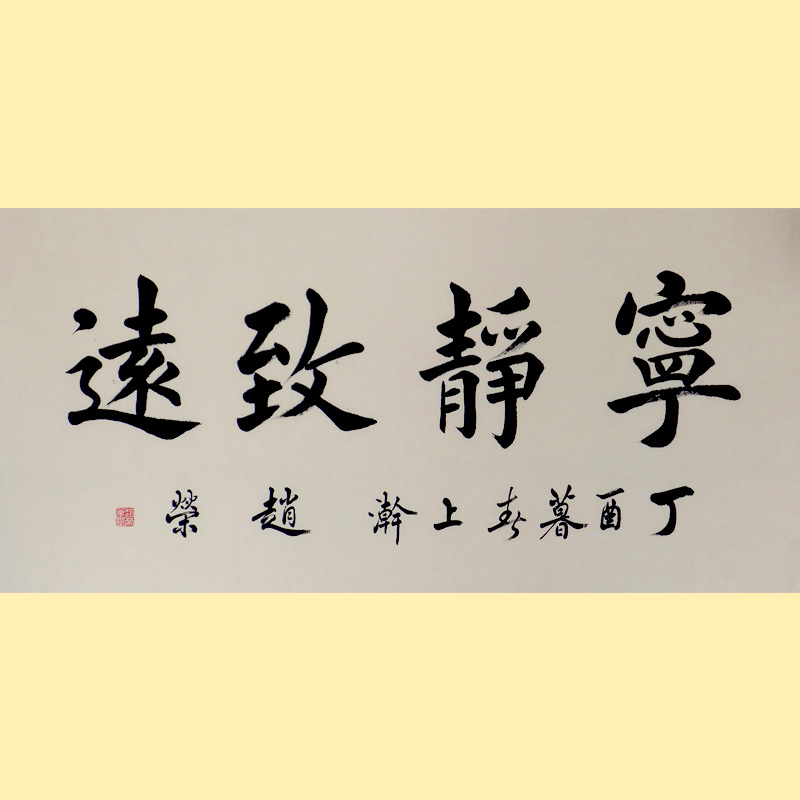 寧靜致遠
丁酉暮春上澣 趙榮